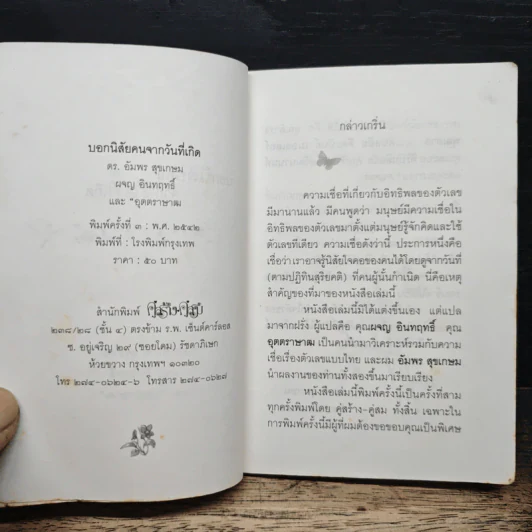 บอกนิสัยคนจากวันที่เกิด
ดร. อัมพร สุขเกษม
ผจญ อินทฤทธิ์
และ "อุตตราษาฒ
พิมพ์ครั้งที่ ๓ : พ.ศ. ๒๕๔๒
พิมพ์ที่ : โรงพิมพ์กรุงเทพ
ราคา : ๕๐ บาท
สำนักพิมพ์
๒๓๘/๒๘ (ชั้น ๔) ตรงข้าม ร.พ. เซ็นต์คาร์ลอส
ซ. อยู่เจริญ ๒๙ (ซอยโดม) รัชดาภิเษก
ห้วยขวาง กรุงเทพฯ ๑๐๓๒๐
โทร ๒๗๔-๐๖๒๔-๖ โทรสาร ๒๗๔-๐๖๒๘
กล่าวเกริ่น
ความเชื่อที่เกี่ยวกับอิทธิพลของตัวเลข
มีมานานแล้ว มีคนพูดว่า มนุษย์มีความเชื่อใน
อิทธิพลของตัวเลขมาตั้งแต่มนุษย์รู้จักคิดและใช้
ตัวเลขทีเดียว ความเชื่อดังว่านี้ ประการหนึ่งคือ
เชื่อว่าเราอาจรู้นิสัยใจคอของคนได้โดยดูจากวันที่
(ตามปฏิทินสุริยคติ) ที่คนผู้นั้นกำเนิด นี่คือเหตุ
สำคัญของที่มาของหนังสือเล่มนี้
หนังสือเล่มนี้มิได้แต่งขึ้นเอง แต่แปล
มาจากฝรั่ง ผู้แปลคือ คุณผจญ อินทฤทธิ์ คุณ
อุตตราษาฒ เป็นคนนำมาวิเคราะห์ร่วมกับความ
เชื่อเรื่องตัวเลขแบบไทย และผม อัมพร สุขเกษม
นำผลงานของท่านทั้งสองขึ้นมาเรียบเรียง
หนังสือเล่มนี้พิมพ์ครั้งนี้เป็นครั้งที่สาม
ทุกครั้งพิมพ์โดย คู่สร้าง-คู่สม ทั้งสิ้น เฉพาะใน
การพิมพ์ครั้งนี้มีผู้ที่ผมต้องขอขอบคุณเป็นพิเศษ